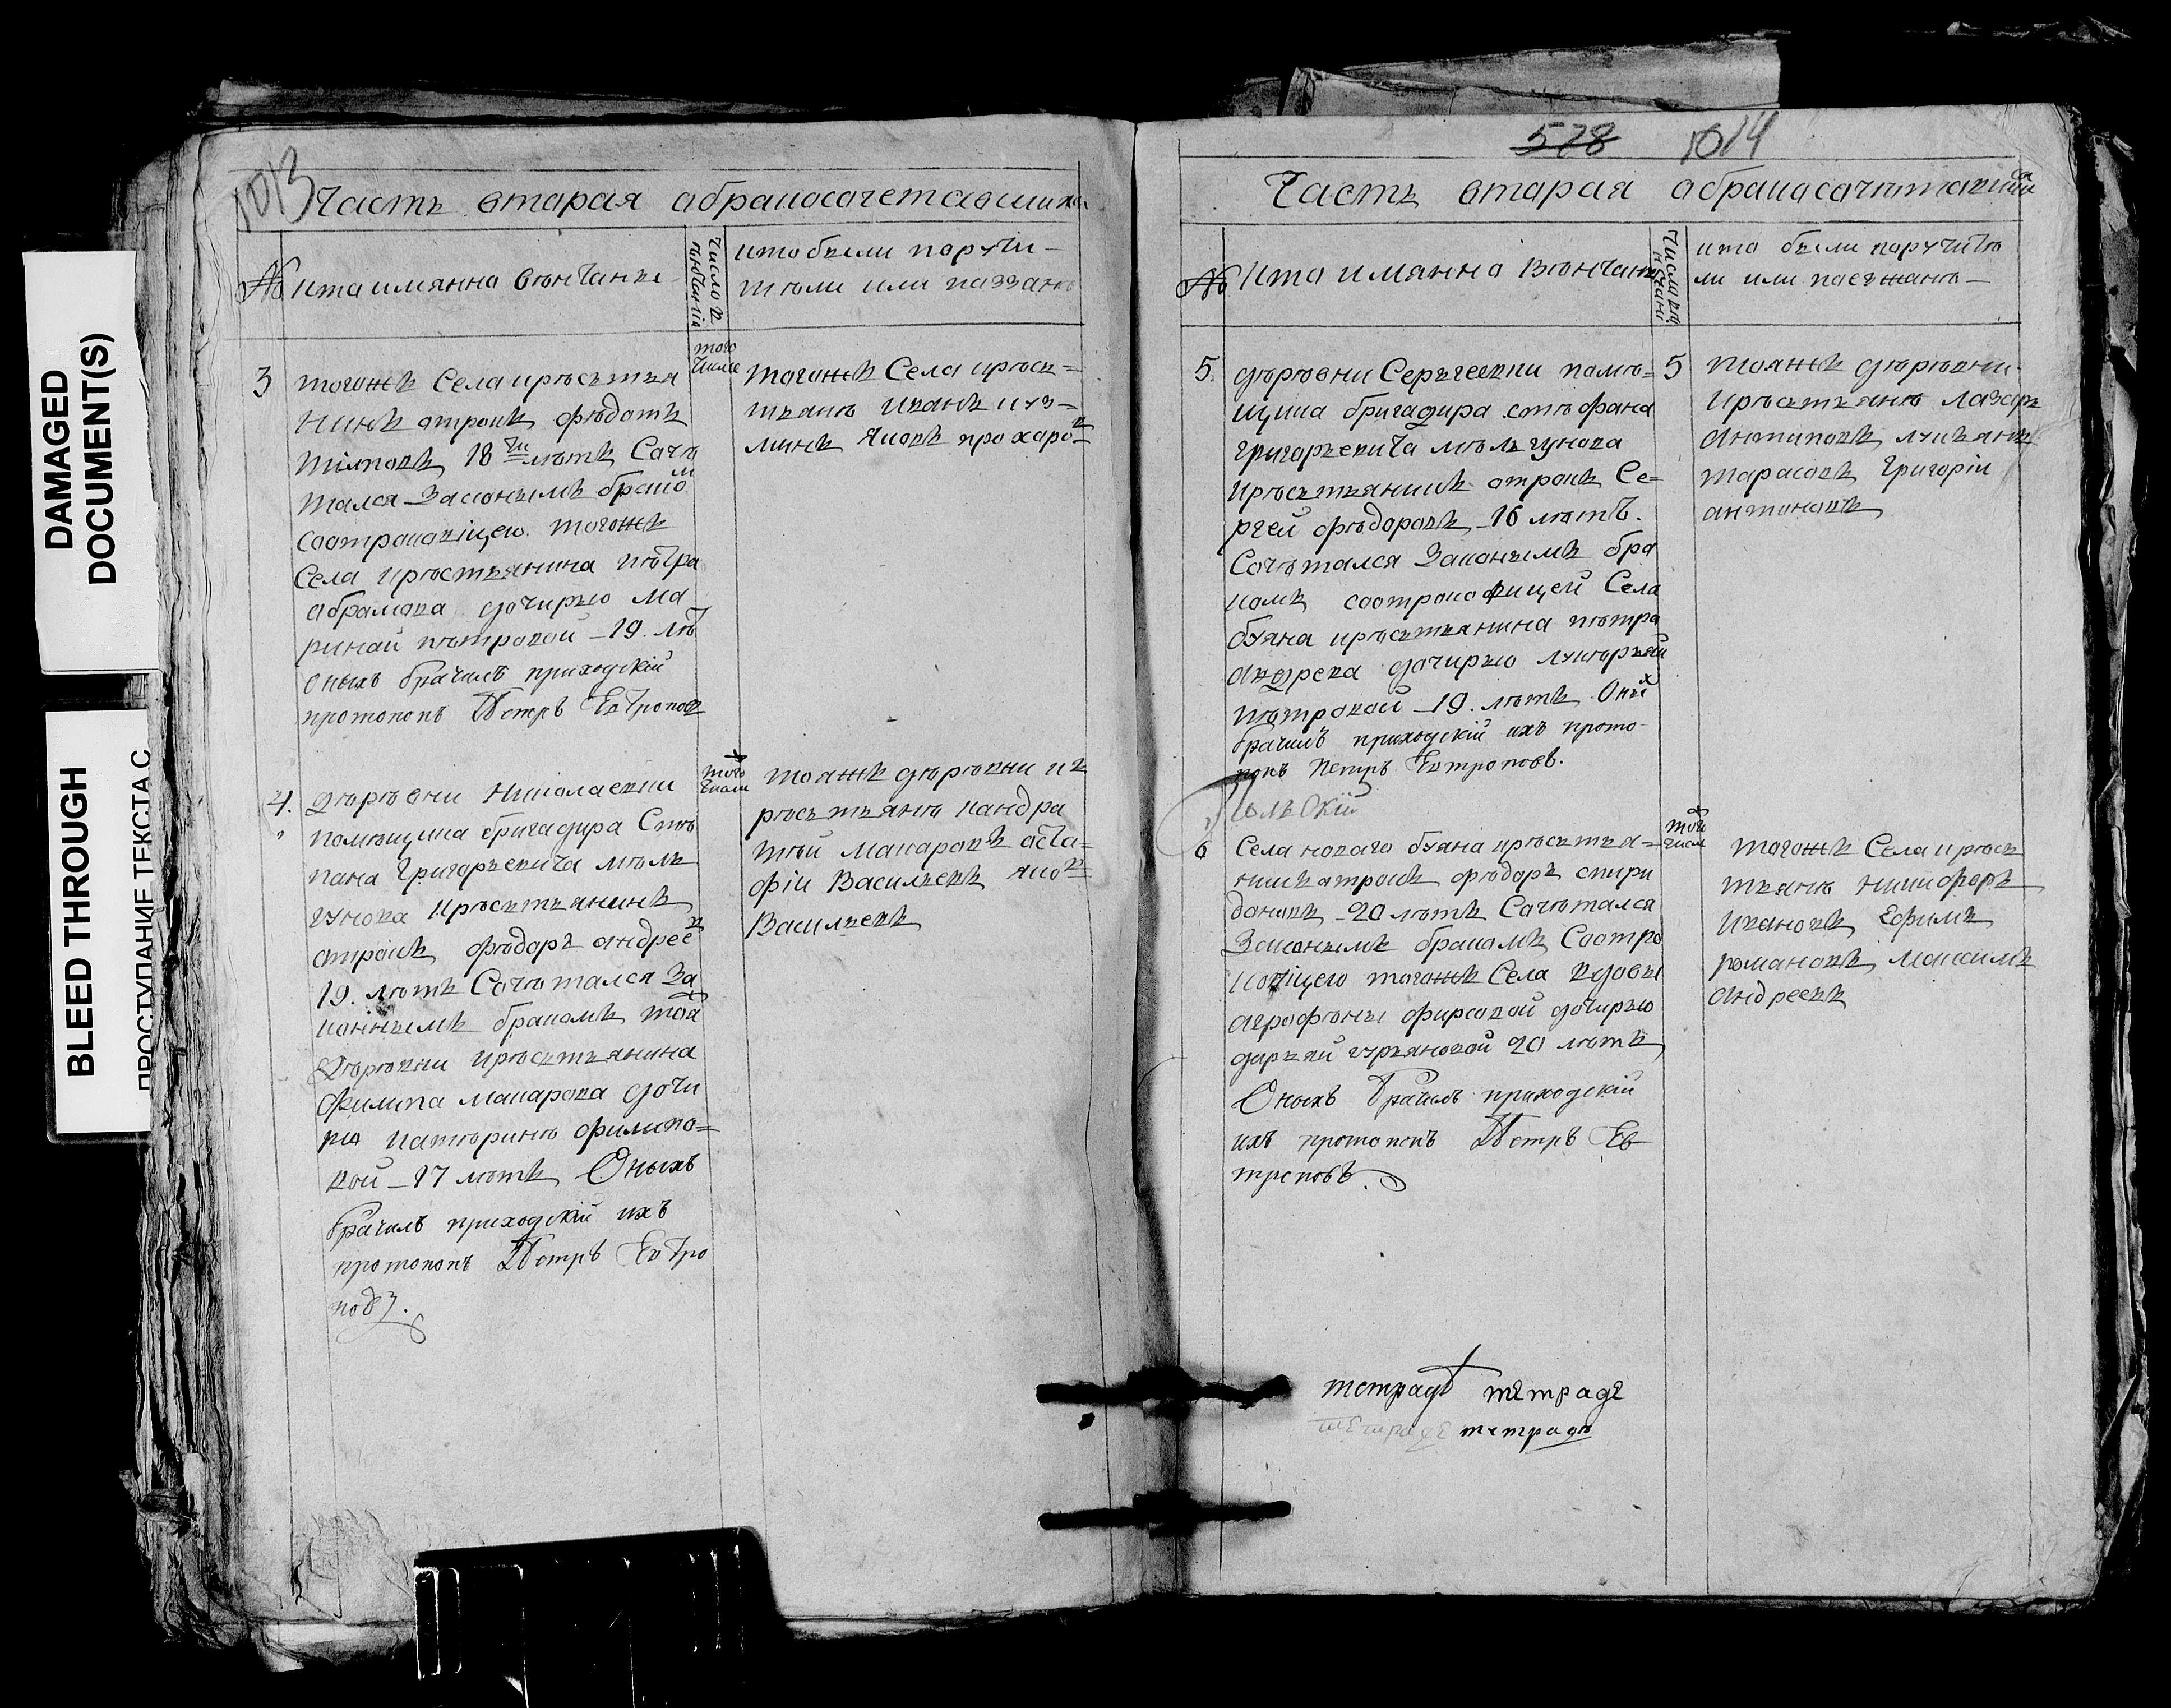 DAMAGED
DOCUMENT(S)
BLEED THROUGH
ПРОСТУПАНИЕ ТЕКСТА С
1013
Часть вторая абракосочетавшихся
№
кто имянно венчаны
число венчания
кто были поручи-
тели или паезжане
3
тогожъ Села кресьтья
нинъ отрокъ федотъ
18 ти летъ Соче
тался Законымъ браком
соотроковіцею тогожъ
Села кресьтьянина петра
абрамова дочирью ма
ринай петровой – 19. ле
оныхъ брачилъ приходскій
протопопъ Петръ Евтропов
того числа
тогожъ Села кресь=
тьяне иванъ куз=
минъ яковъ прохаров
4.
деревни николаевки
помещика бригадира Сте
пана григорьевича мель
гунова кресьтьянинъ
отрокъ федоръ андреев
19. летъ Сочетался За
конныимъ бракомъ той
деревни кресьтьянина
филипа макарова дочи
рю катерину филипо=
вой – 17 летъ Оныхъ
брачилъ приходскій ихъ
протопопъ Петръ Евтро
повъ.
того числа
тояжъ деревни кь
ресьтьяне кандра
тъй макаровъ аста=
фіи Васильевъ яков
Васильевъ
578 1014
Часть вторая абракосочетавшихся
№
Кто имянно венчаны
число венчани
кто были поручите
ли или паезжане –
5.
деревни Серьгеевки поме=
щика бригадира стефана
григорьевича мельгунова
кресьтьянинъ отрокъ Се-
ргей федоровъ – 16 летъ.
Сочетался Законымъ бра
комъ соотроковицей Села
буяна кресьтьянина петра
андрева дочирью лукерьей
петровой – 19. летъ. Оных
брачилъ приходскій ихъ прото-
попъ Петръ Евтроповъ.
5
тояжъ деревни
кресьтьяне лазоръ
антиповъ, лукьянъ
тарасовъ григорій
антоновъ
Іюльскій
6
Села новаго буяна кресьтья=
нинъ отрокъ федоръ спири
доновъ – 20 летъ Сочетался
Законымъ бракомъ Соотро
ковіцею тогожъ Села вдовы
агрофены фирсовой дочирью
дарьей гурьяновой 20 летъ
Оныхъ брачилъ приходскій
ихъ протопопъ Петръ Ев
троповъ.
того числа
тогожъ Села кресь
тьяне никифоръ
ивановъ Ефимъ
романовъ, максимъ
андреевъ
тетрадь тетраде
тетраде тетраде